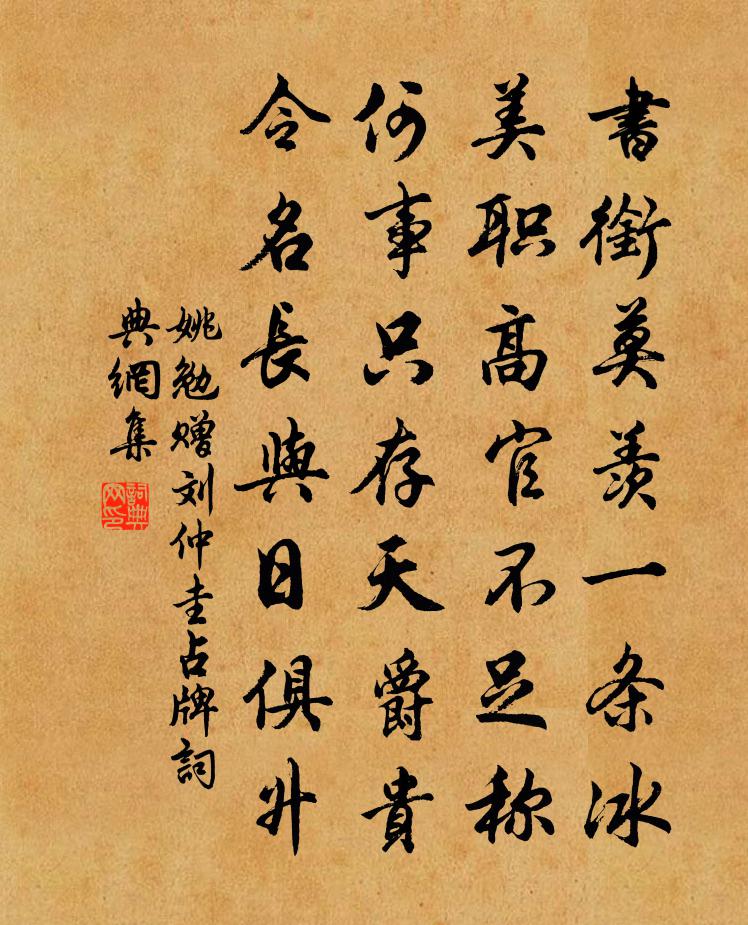 書銜莫羡一条冰
美职高官不足称
何事只存天爵貴
令名長與日俱升
姚勉赠刘仲圭占牌詞
典網集
詞典
网印